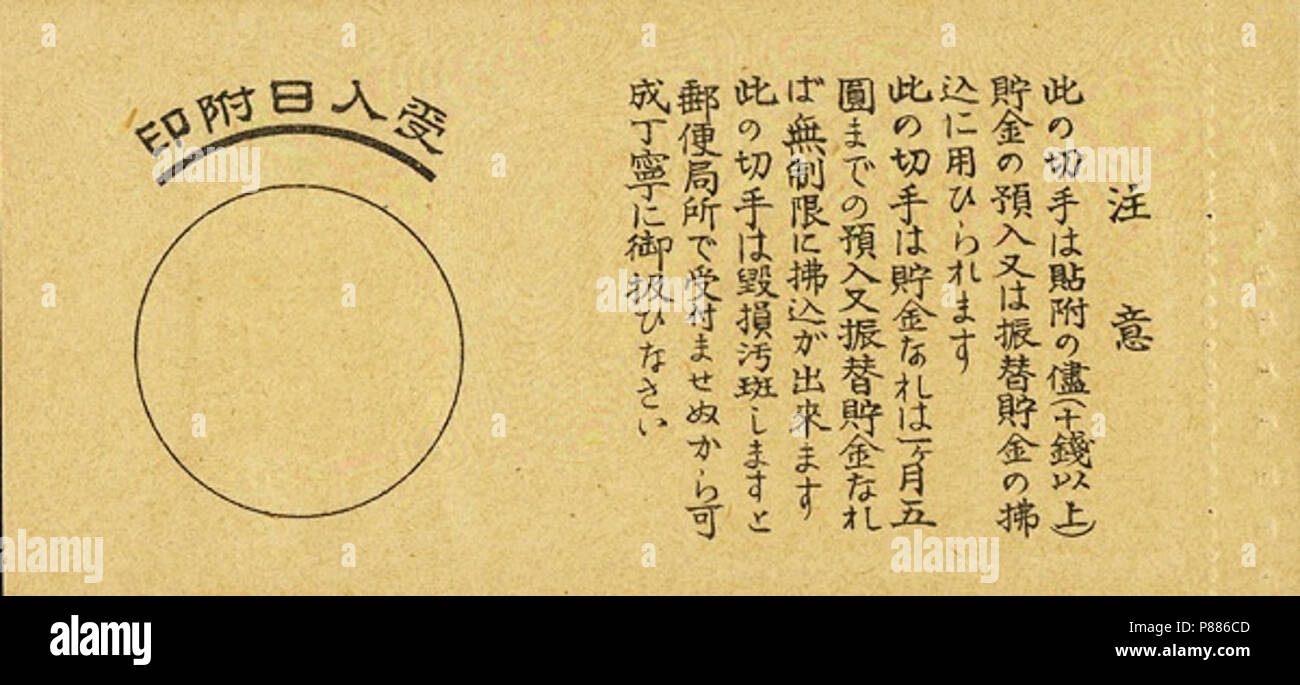 注意
此の切手は貼附の儘(十錢以上)
貯金の預入又は振替貯金の拂
込に用ひられます
此の切手は貯金なれは一ヶ月五
圓までの預入又振替貯金なれ
ば無制限に拂込が出來ます
此の切手は毀損汚斑しますと
郵便局所で受付ませぬから可
成丁寧に御扱ひなさい
受入日附印
alamy
alamy
Image ID: P886CD
www.alamy.com